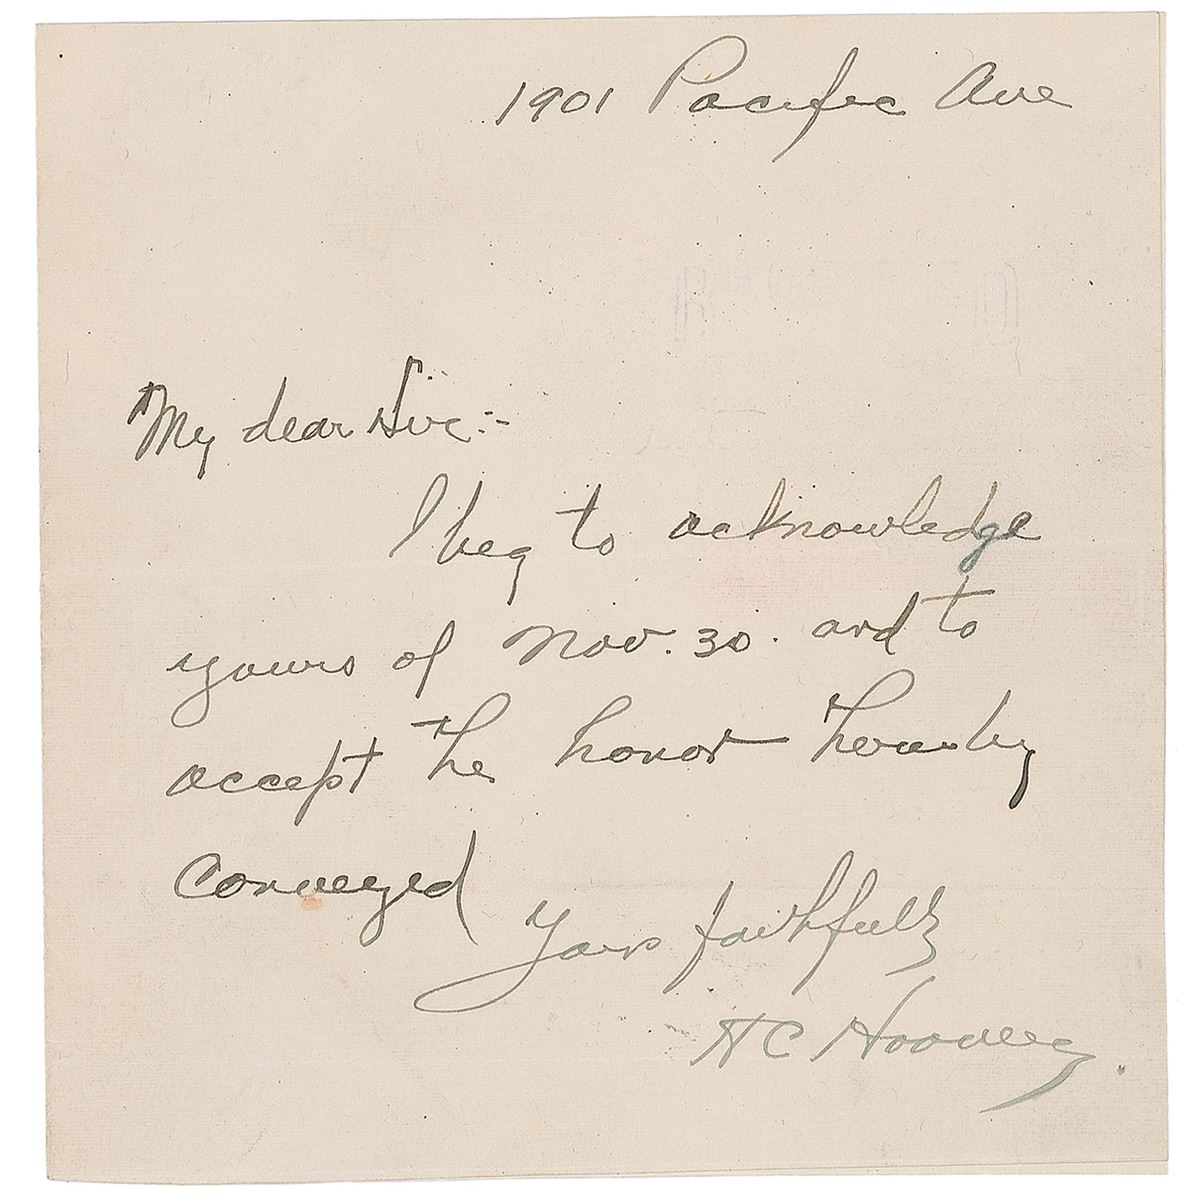 1901 Pacific Ave
My dear Sir:-
I beg to acknowledge
yours of Nov. 30. and to
accept the honor thereby
conveyed
Yours faithfully
H C Hoover.